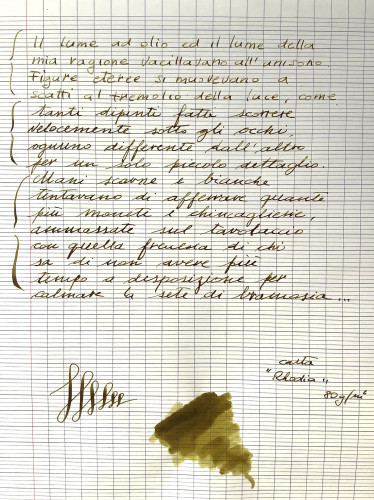 Il lume ad olio ed il lume della
mia ragione vacillavano all'unisono.
Figure eteree si muovevano a
scatti al tremolio della luce, come
tanti dipinti fatti scorrere
velocemente sotto gli occhi,
ognuno differente dall'altro
per un solo piccolo dettaglio.
Mani scarne e bianche
tintavano di afferrare quante
più monete e chincaglierie,
ammassate sul tavolaccio
con quella frenesia di chi
sa di non avere più
tempo a disposizione per
calmare la sete di bramosia...
carta
"Rhodia"
80g/m²